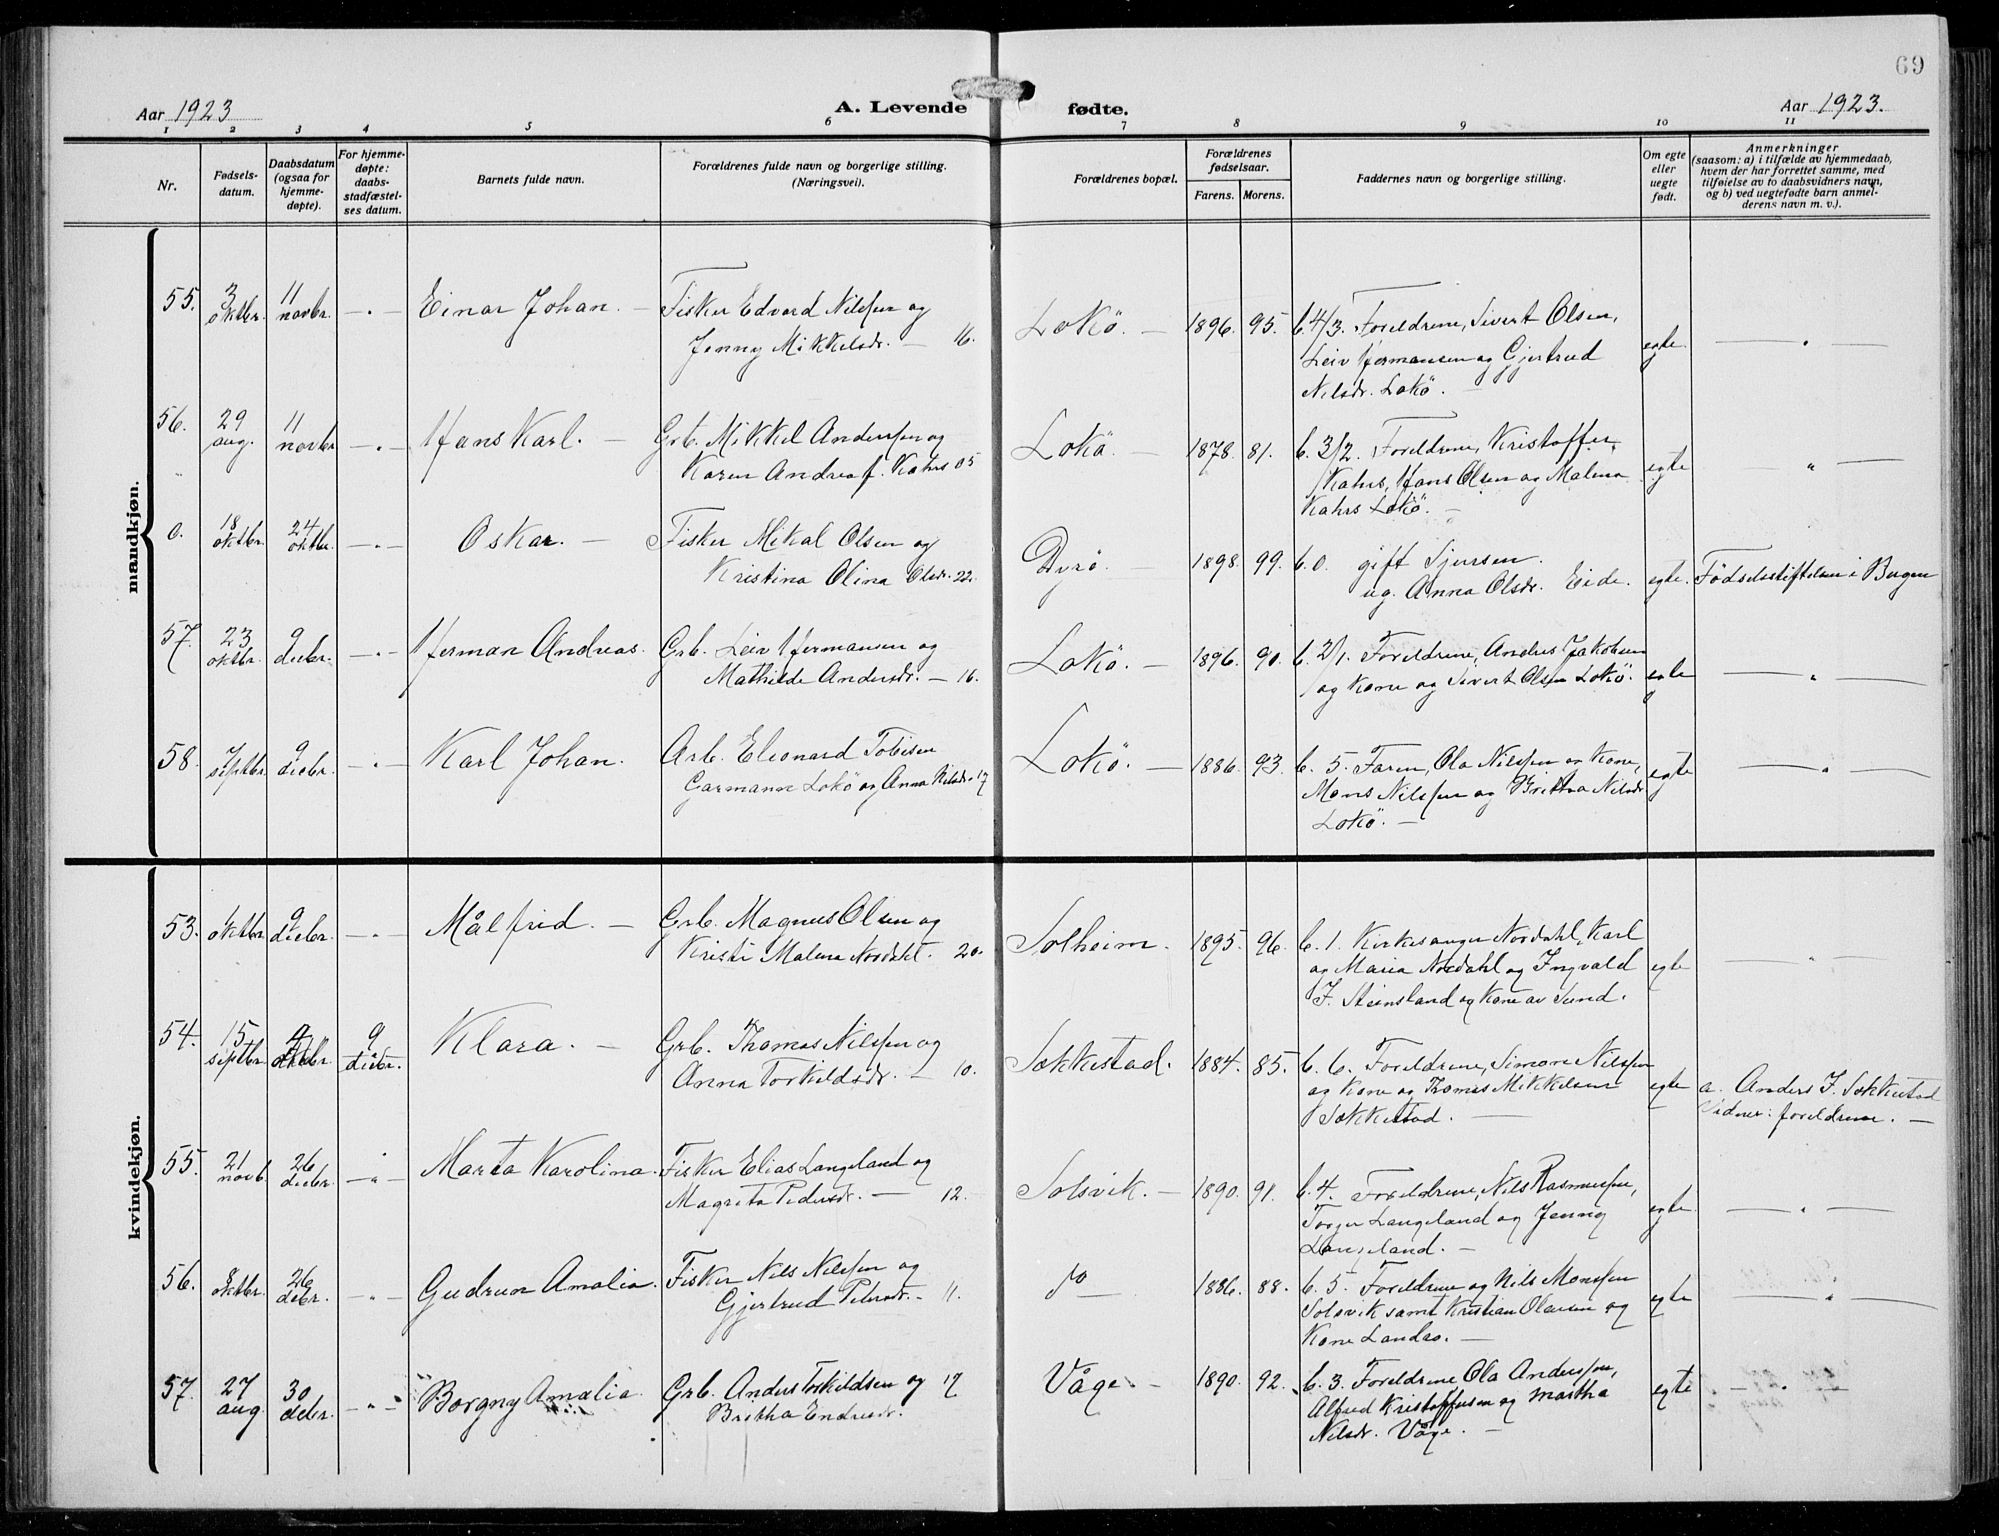 69
Aar 1923
A. Levende fødte.
Aar 1923.
1 2 3 4 5 6 7 8 9 10 11
Nr.
Fødsels-
datum.
Daabsdatum
(ogsaa for
hjemme-
døpte).
For hjemme-
døpte:
daabs-
stadfæstel-
ses datum.
Barnets fulde navn.
Forældrenes fulde navn og borgerlige stilling.
(Næringsvei).
Forældrenes bopæl.
Forældrenes
fødselsaar.
Farens. Morens.
Faddernes navn og borgerlige stilling.
Om egte
eller
uegte
født.
Anmerkninger
(saasom: a) i tilfælde av hjemmedaab,
hvem der har forrettet samme, med
tilføielse av to daabsvidners navn,
og b) ved uegtefødte barn anmel-
derens navn m. v.).
mandkjøn.
55. 3 oktbr. 11 novbr. — " — Einar Johan. — Fisker Edvard Nilssen og
Jenny Mikkelsdr. — 16.
Lokö. — 1896. 95. b. 4/3. Foreldrene, Sivert Olsen,
Leiv Hermansen og Gjertrud
Nilsdr. Lokö. —
egte — " —
56. 29 aug. 11 novbr — " — Hans Karl. — Grb. Mikkel Anderssen og
Karen Andrea f. Kahrs 05
Lokö. — 1878. 81. b. 3/2. Foreldrene, Kristoffer
Kahrs, Hans Olsen og Malena
Kahrs Lokö. —
egte " —
0. 18 oktbr. 24 oktbr. — " — Oskar. — Fisker Mikal Olsen og
Kristina Olina Olsdr. 22.
Dyrö. — 1898. 99. b. 0. gift Sjursen.
ug. Anna Olsdr. Eide.
egte. Födselsstiftelsen i Bergen
57. 23 oktbr. 9 decbr. — " — Herman Andreas. Grb. Leiv Hermansen og
Mathilde Andersdr. — 16.
Lokö. — 1896. 90. b. 2/1. Foreldrene, Anders Jakobsen
og Kone og Sivert Olsen Lokö.
egte — " —
58. 7 septbr. 9 decbr. — " — Karl Johan. Arb. Eleonard Tobisen
Garmann Lokö og Anna Nilsdr. 17
Lokö. — 1886. 93. b. 5. Faren, Ola Nilssen og Kone,
Mons Nilssen og Brittha Nilsdr
Lokö. —
egte — " —
kvindekjøn.
53. oktbr. 9 decbr. — " — Målfrid. — Grb. Magnus Olsen og
Kristi Malena Nordahl. 20.
Solheim. 1895. 96. b. 1. Kirkesanger Nordahl, Karl
og Maria Nordahl og Ingvald
J. Steinsland og Kone av Sund.
egte — " —
54. 15 septbr. 9 decbr. Klara. — Grb. Thomas Nilssen og
Anna Torkildsdr. — 10.
Sækkestad. 1884. 85. b. 6. Foreldrene, Simon Nilssen
og Kone og Thomas Mikkelsen
Sækkestad. —
egte a. Anders J. Sækkestad
Vidner: foreldrene. —
55. 21 novb. 26 decbr. — " — Marta Karolina. Fisker Elias Langeland og
Magreta Pedersdr. — 12.
Solsvik. — 1890. 91. b. 4. Foreldrene, Nils Rasmussen,
Torger Langeland og Jenny
Langeland. —
egte — " —
56. 8 oktbr. 26 decbr. — " — Gudrun Amalia. Fisker Nils Nilssen og
Gjertrud Petersdr. — 11.
do — 1886. 88. b. 5. Foreldrene og Nils Monssen
Solsvik samt Kristian Olausen og
Kone Landro. —
egte — " —
57. 27 aug. 30 decbr. — " — Borgny Amalia. Grb. Anders Torkildsen og 17
Britha Endresdr.
Våge. — 1890. 92. b. 3. Foreldrene Ola Anderssen,
Alfred Kristoffersen og Martha
Nilsdr. Våge. —
egte — " —